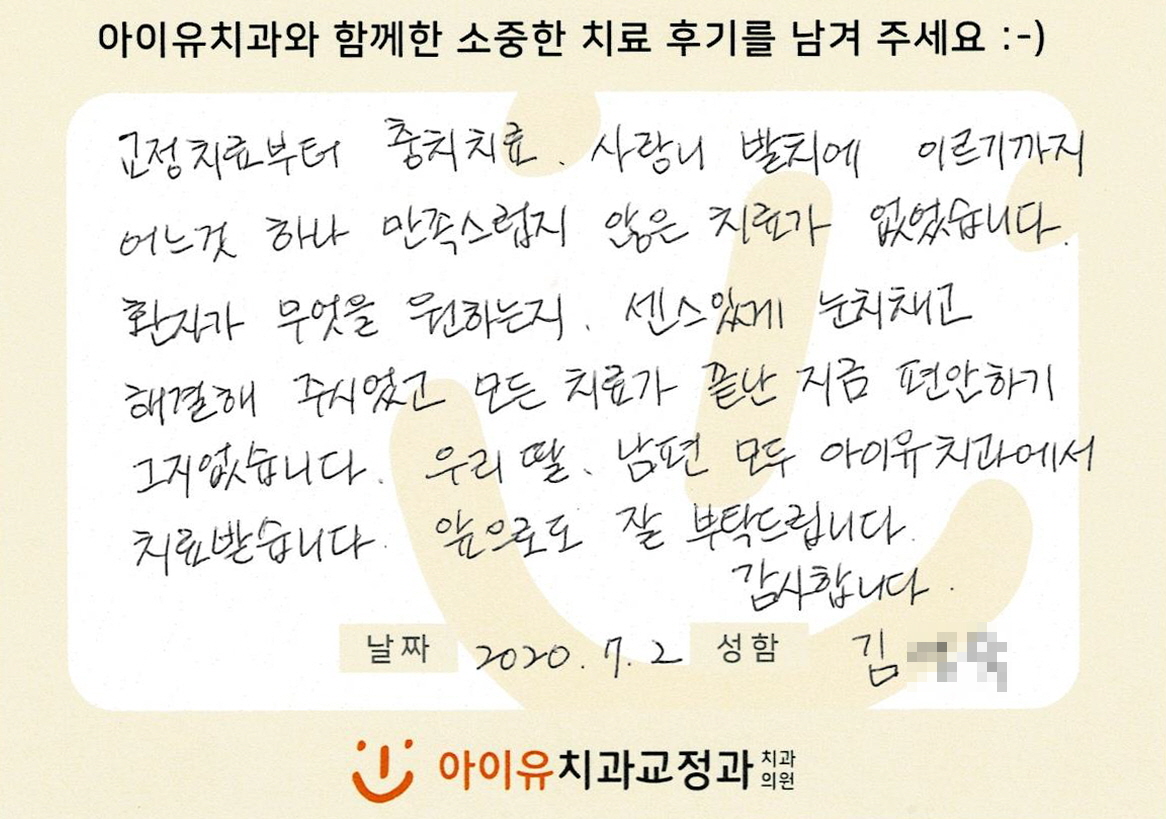 아이유치과와 함께한 소중한 치료 후기를 남겨 주세요 :-)
교정치료부터 충치치료, 사랑니 발치에 이르기까지
어느것 하나 만족스럽지 않은 치료가 없었습니다.
환자가 무엇을 원하는지, 센스있게 눈치채고
해결해 주시었고 모든 치료가 끝난 지금 편안하기
그지없습니다. 우리 딸, 남편 모두 아이유치과에서
치료받습니다. 앞으로도 잘 부탁드립니다.
감사합니다.
날짜 2020. 7. 2 성함 김
아이유치과교정과 치과의원